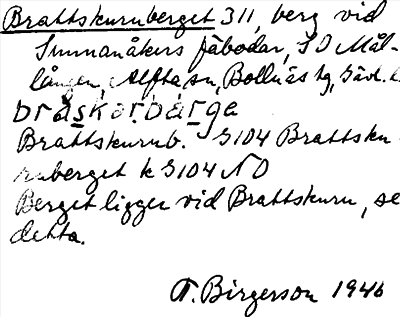 Brattskurnberget 311, berg vid
Sunnanåkers fäbodar, SO Mål-
lången, Alfta sn, Bollnäs tg, Gävl. l.
Brattskurub. G104 Brattsku-
ruberget k G104 NO
Berget ligger vid Brattskuru, se
detta.
T. Birgerson 1946